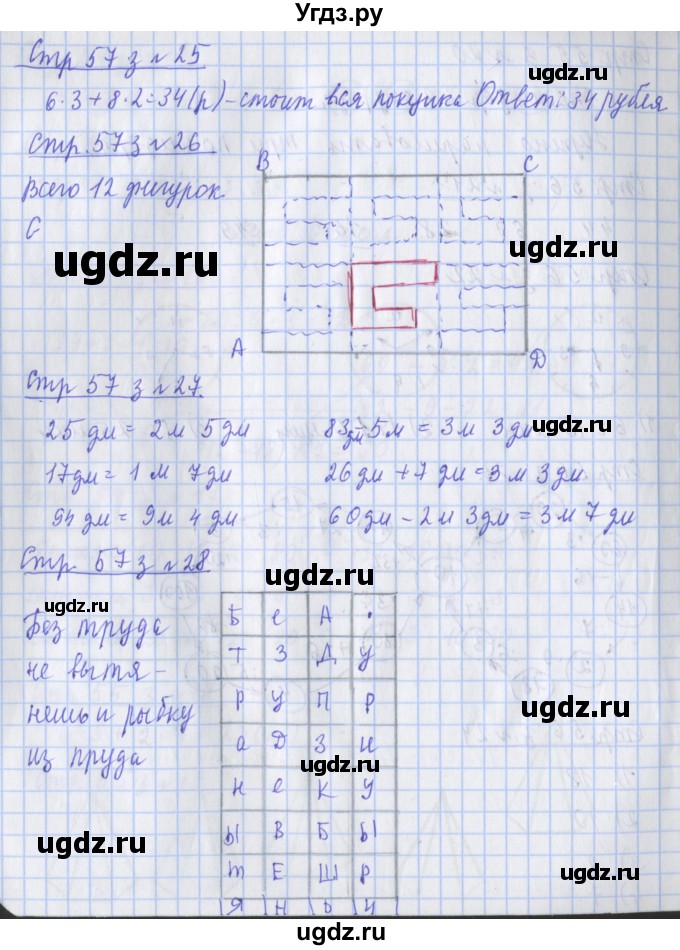 Угдз.ру
Стр 57 з №25
6·3+8·2=34(р) - стоит вся покупка Ответ: 34 рубля
Стр. 57 з №26
Всего 12 фигурок
С
B
C
A
D
Стр 57 з №27.
25 дм = 2 м 5 дм
83 дм - 5 м = 3 м 3 дм
17 дм = 1 м 7 дм
26 дм + 7 дм = 3 м 3 дм
94 дм = 9 м 4 дм
60 дм - 2 м 3 дм = 3 м 7 дм
Стр. 57 з №28
Без труда
не вытя-
нешь и рыбку
из пруда
Б е А .
Т З Д У
Р У П Р
а Д З И
Н е К У
Ы В Б Ы
т Е Ш Р
Я Н Ь И
ugdz.ru
ugdz.ru
ugdz.ru
ugdz.ru
ugdz.ru
ugdz.ru
ugdz.ru
ugdz.ru
ugdz.ru
ugdz.ru
ugdz.ru